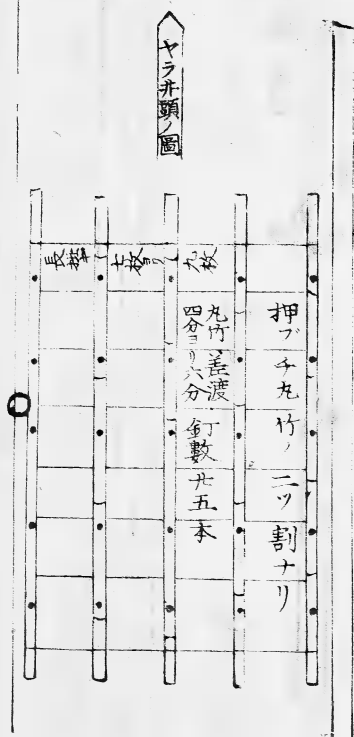 ヤラヰ頭ノ圖
押ブチ丸竹ノ二ツ割ナリ
丸竹差渡
四分ヨリ六分
釘數廿五本
七枚ヨリ
九枚